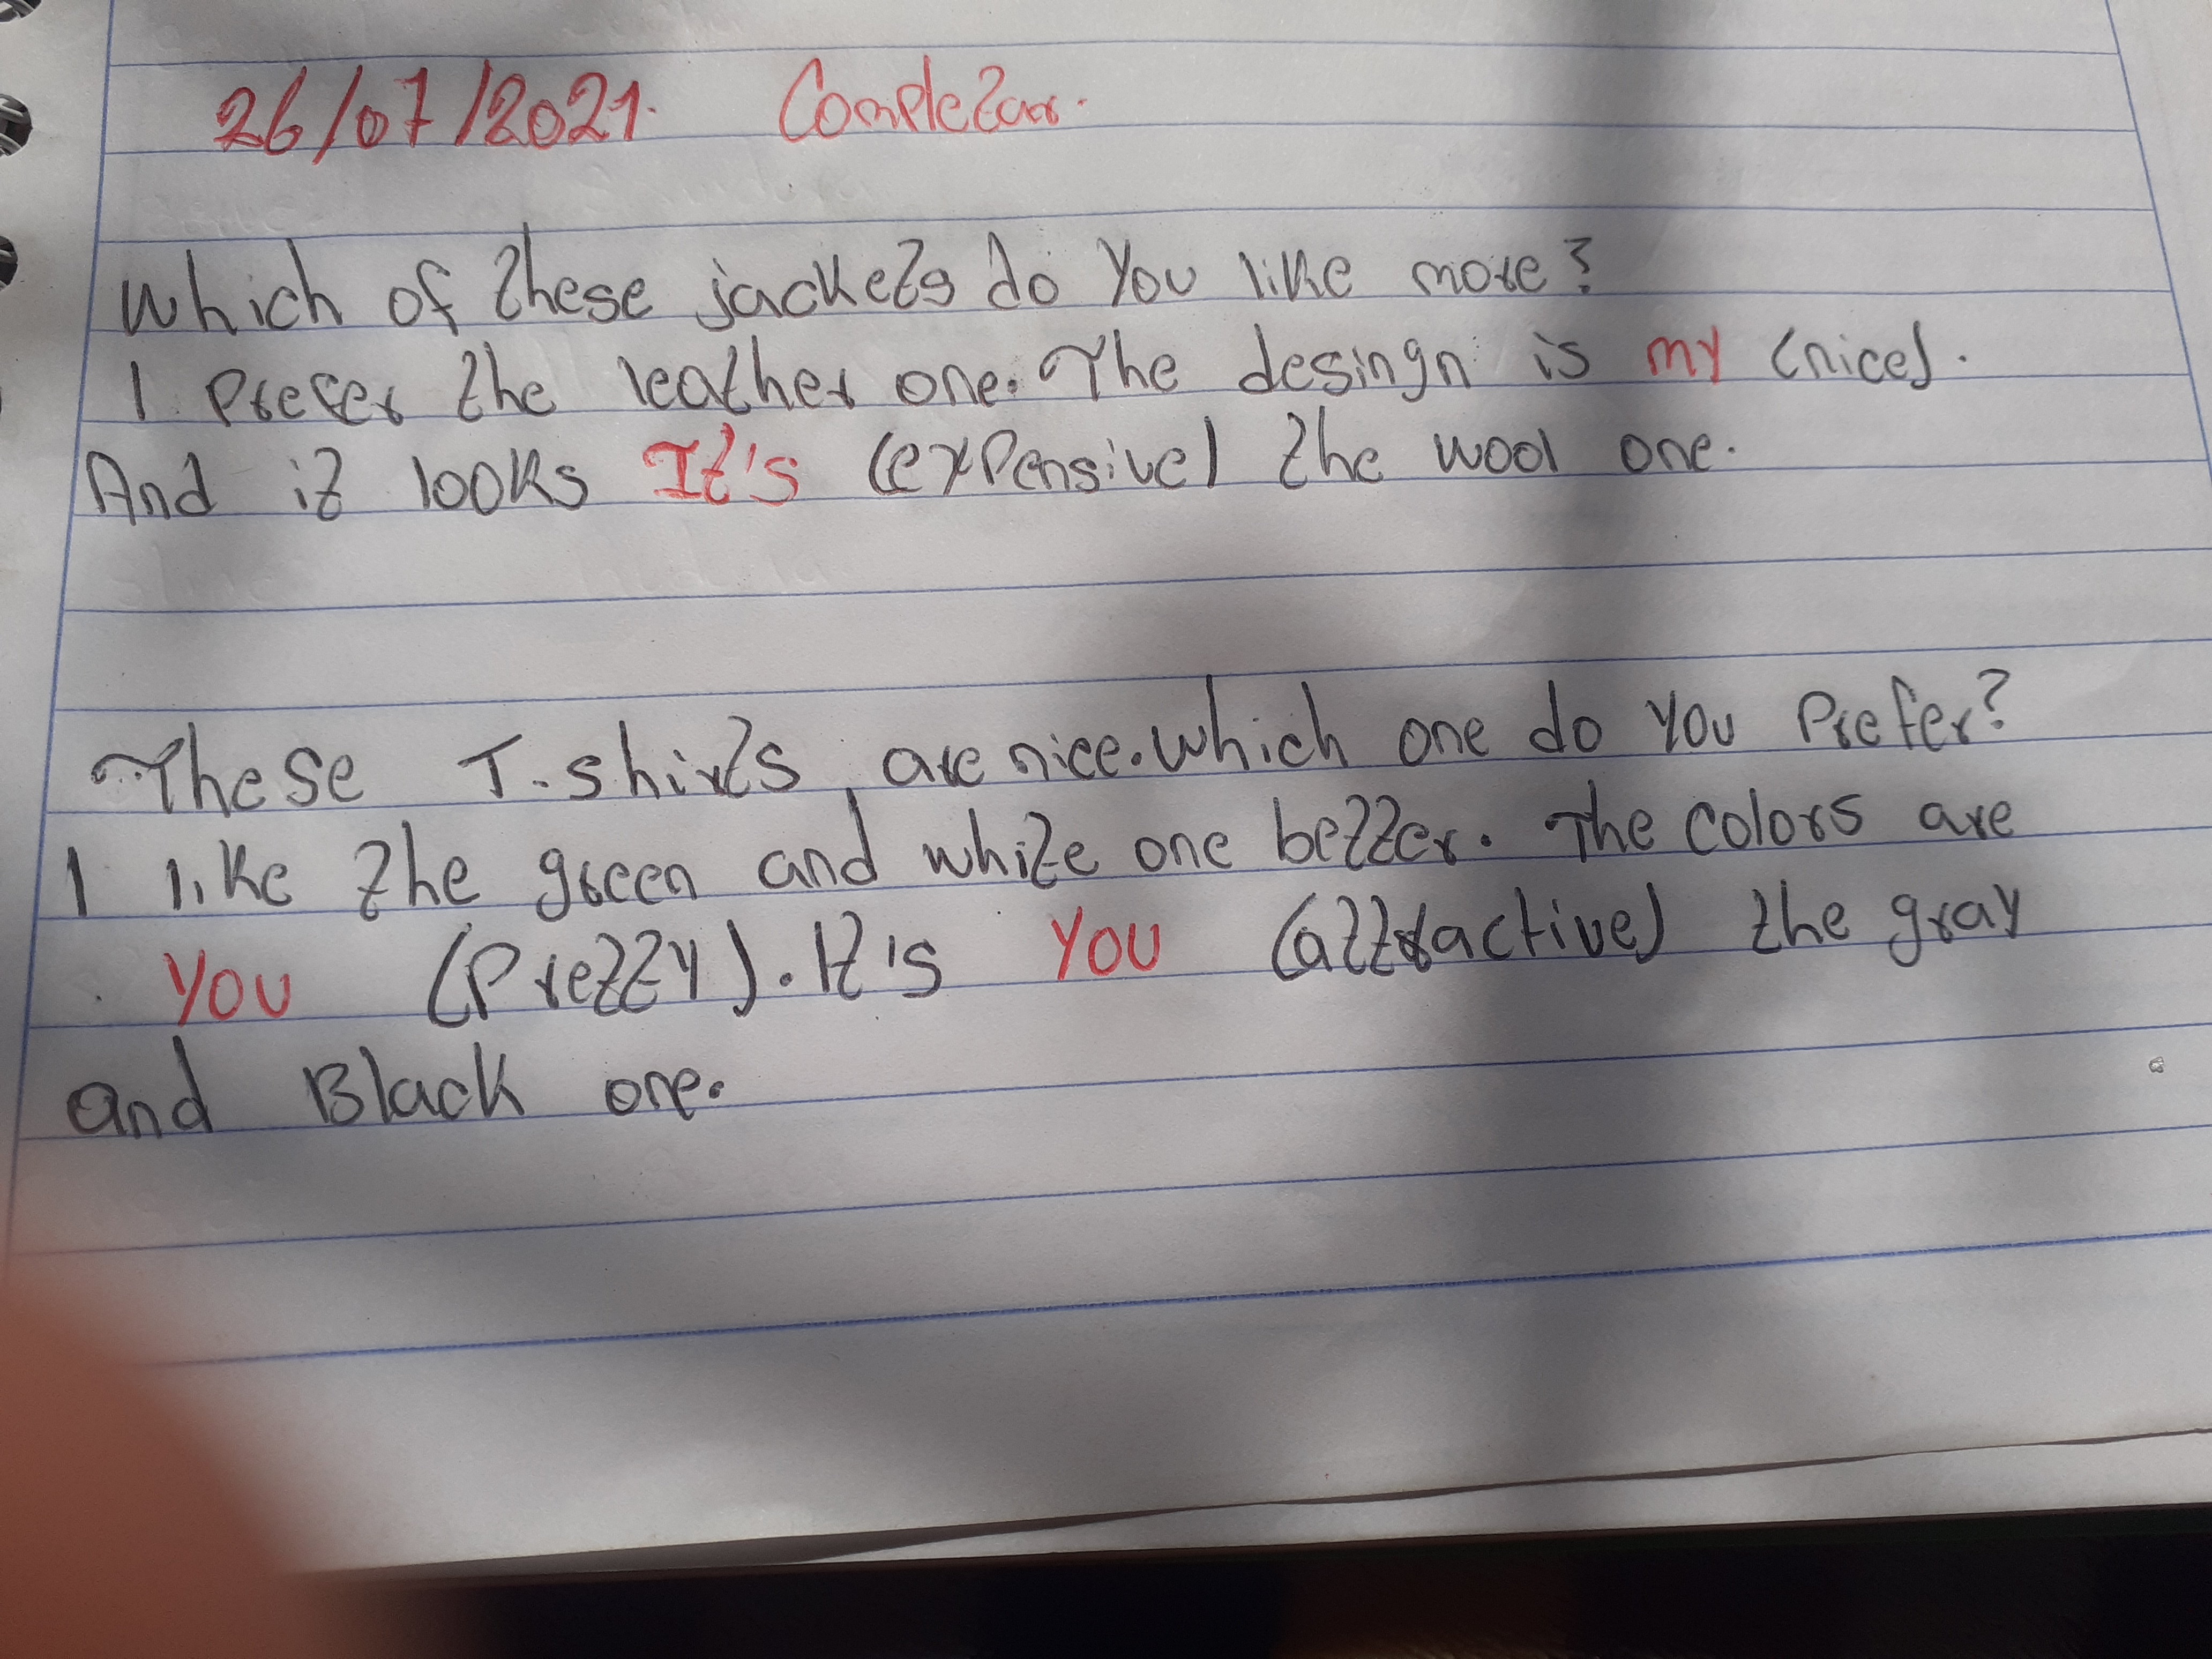 26/07/2021. Completar.
Which of these jackets do you like more?
I prefer the leather one. The desingn is my (nice).
And it looks It's (expensive) the wool one.
These T-shirts are nice. which one do you prefer?
I like the green and white one better. The colors are
you (pretty). It's you (attractive) the gray
and Black one.